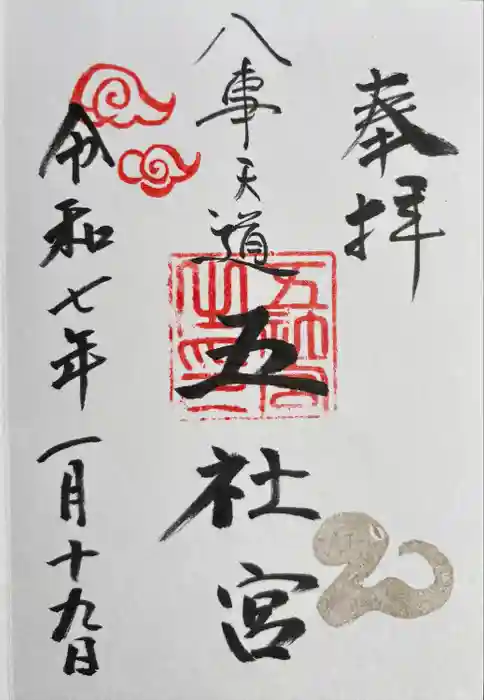 奉拝
八事天道
五社宮
令和七年一月十九日